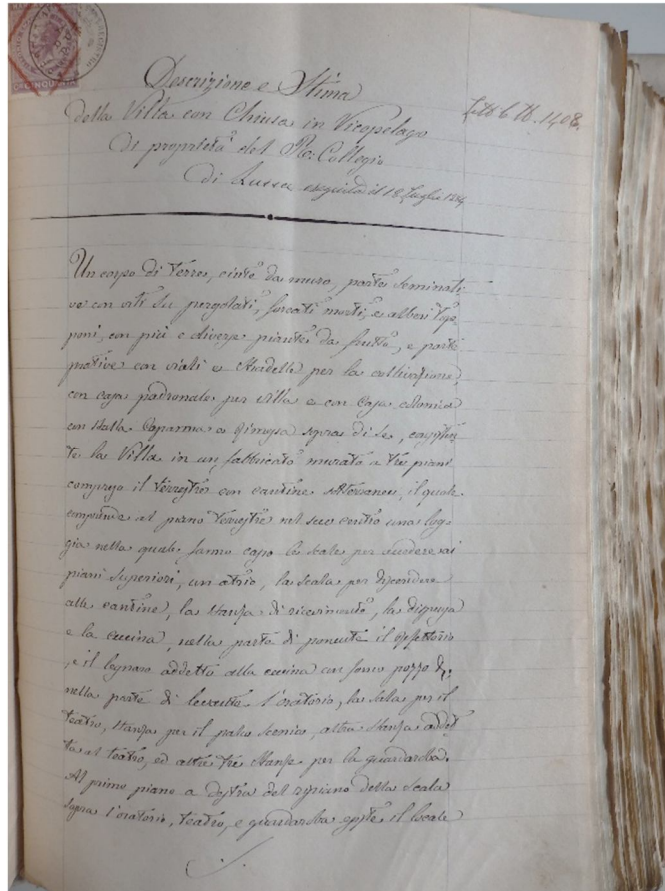 Descrizione e Stima
della Villa con Chiusa in Vicopelago
di proprietà del R. Collegio
di Lucca eseguita il 18 Luglio
1408.
Un corpo di terra, cinto da muro, parte seminati-
vo con viti su pergolati, forcati morti, e alberi
poni, con più e diverse piante da frutto, e parte
prative con viali e stradelle per la coltivazione,
con casa padronale per villa e con casa colonica
con stalla capanna e rimessa sopra di se, consisten-
te la Villa in un fabbricato murato a tre piani
compreso il terrestre con cantine sotterranee, il quale
comprende al piano terrestre nel suo centro una log-
gia nella quale fanno capo le scale per accedere ai
piani superiori, un atrio, la scala per discendere
alle cantine, la stanza di ricevimento, la dispensa
e la cucina, nella parte di ponente il
, e il legnaro addetto alla cucina con forno pozzo
nella parte di levante l'oratorio, la sala per il
teatro, stanza per il palco scenico, altra stanza addet-
ta al teatro, ed altre tre stanze per la guardaroba.
Al primo piano a destra del ripiano della scala
sopra l'oratorio, teatro, e guardaroba esiste il locale